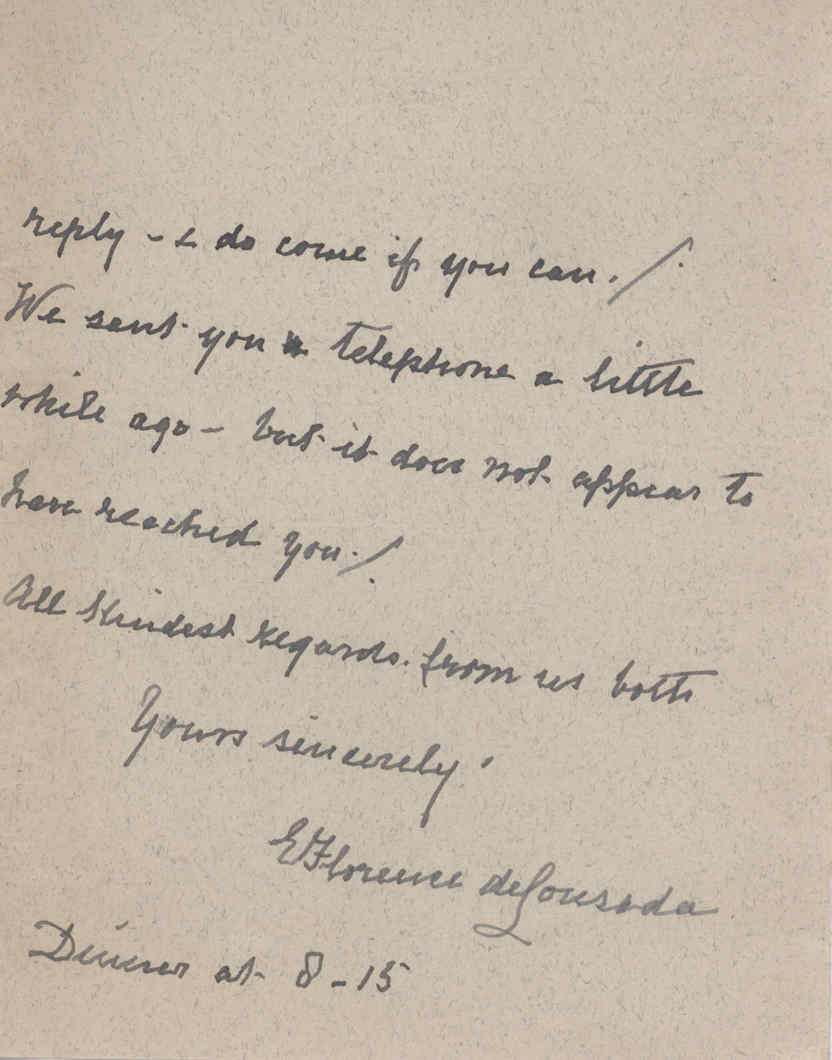 reply - & do come if you can. /.
We sent you a telephone a little
while ago - but it does not appear to
have reached you. /.
All kindest regards. from us both
Yours sincerely
E Florence de Lousada
Dinner at 8-15